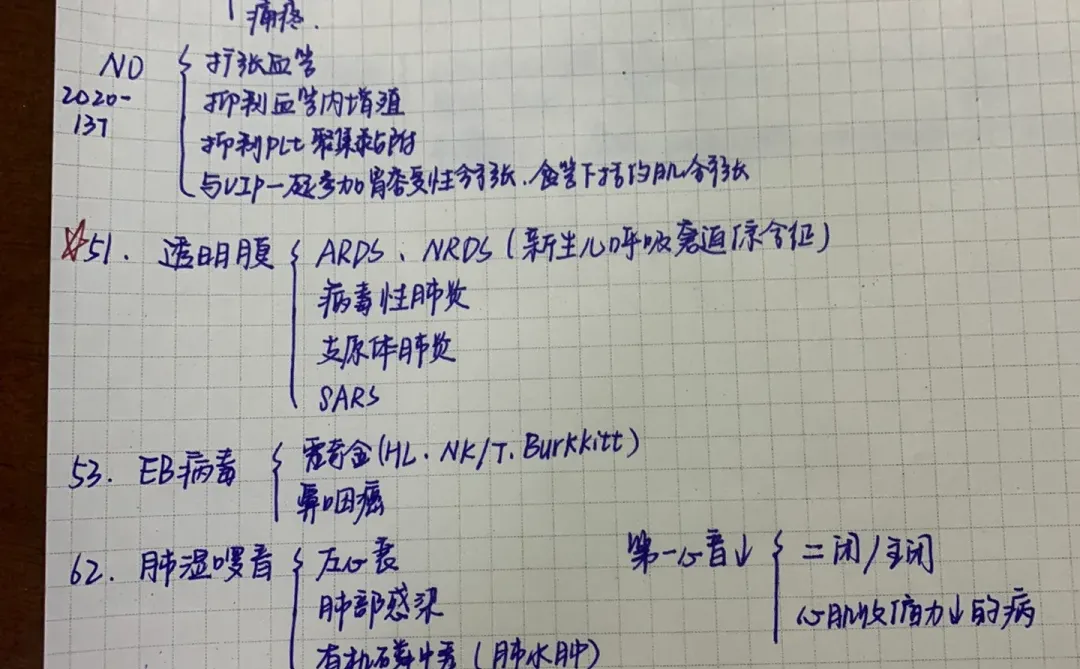 痛疼.
NO
2020-
137
扩张血管
抑制血管内增殖
抑制PLt聚集黏附
与VIP一起参加胃容受性舒张.食管下括约肌舒张
☆51. 透明膜 ARDS、NRDS(新生儿呼吸衰迫综合征)
病毒性肺炎
支原体肺炎
SARS
53. EB病毒 (HL.NK/T.Burkkitt)
鼻咽癌
62. 肺湿啰音 左心衰
肺部感染
有机磷中毒(肺水肿)
第一心音↓ 二闭/主闭
心肌收缩力↓的病